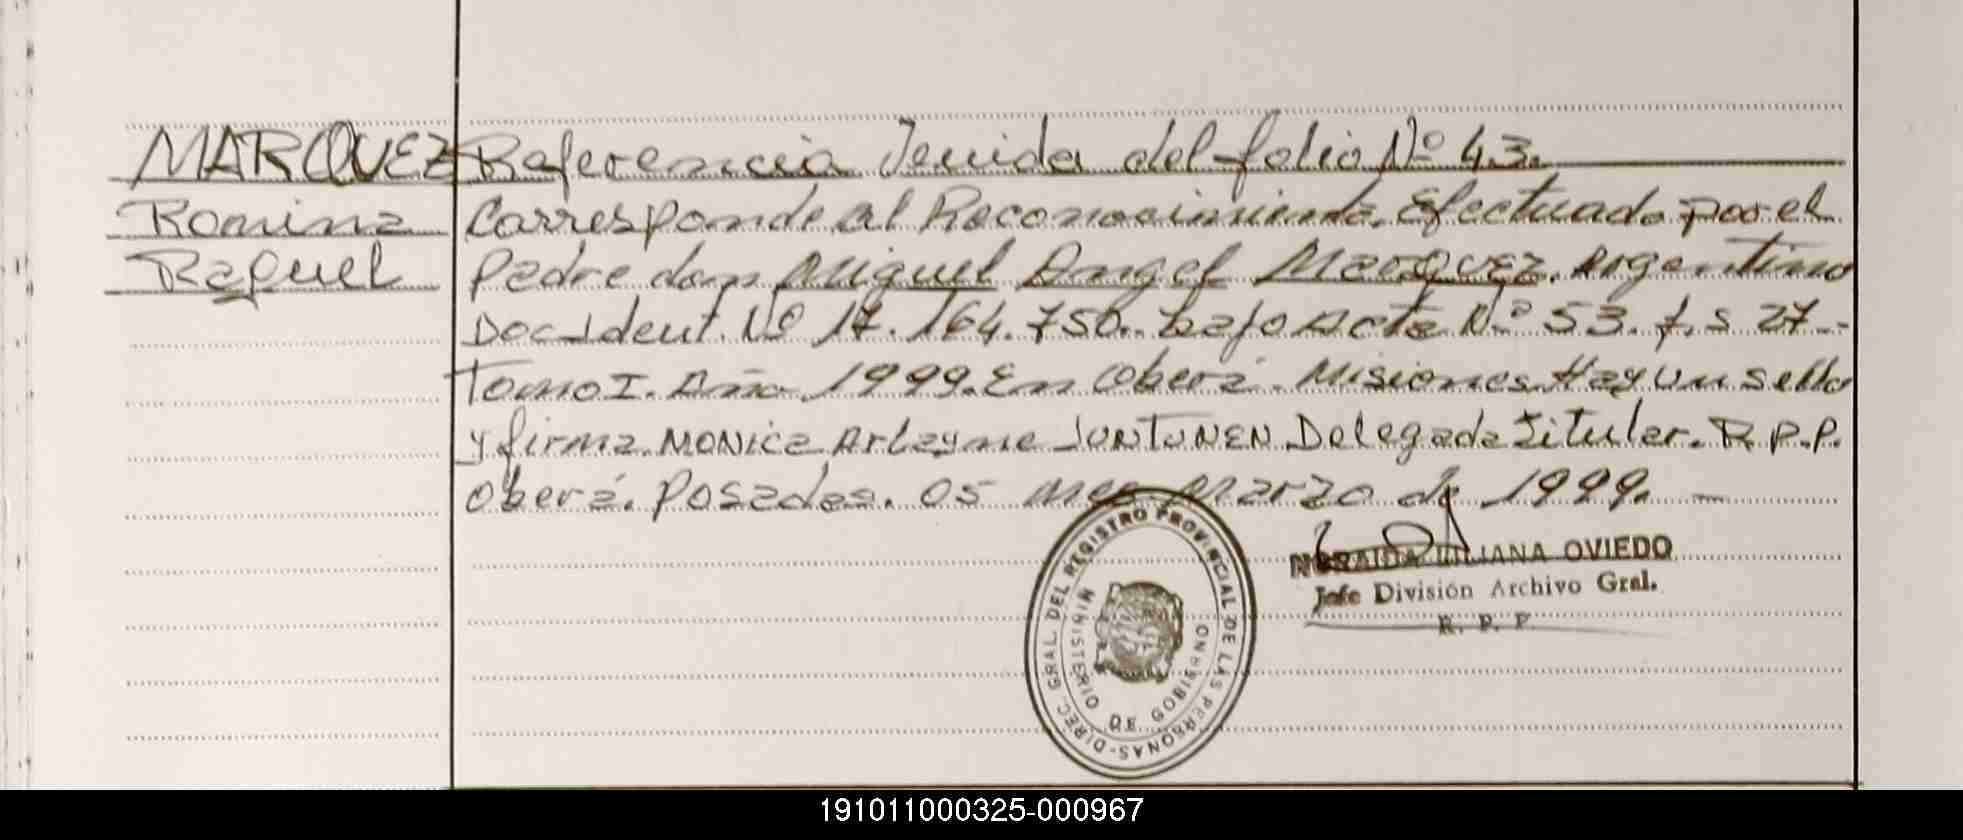 MARQUEZ
Romina
Raquel
Referencia Venida del folio Nº 43.
Corresponde al Reconocimiento Efectuado por el
Padre don Miguel Angel Marquez. Argentino
Doc. Ident. Nº 17.164.750. bajo Acta Nº 53. f.s 27.-
Tomo I. Año 1999. En Oberá. Misiones. Hay un sello
y firma. MONICA Arlayne JUNTUNEN Delegada Titular. R.P.P.
Oberá. Posadas. 05 mes Marzo de 1999. —
NORAIDA LILIANA OVIEDO
Jefe División Archivo Gral.
R. P. P.
DIREC. GRAL. DEL REGISTRO PROVINCIAL DE LAS PERSONAS-
MINISTERIO DE GOBIERNO
191011000325-000967